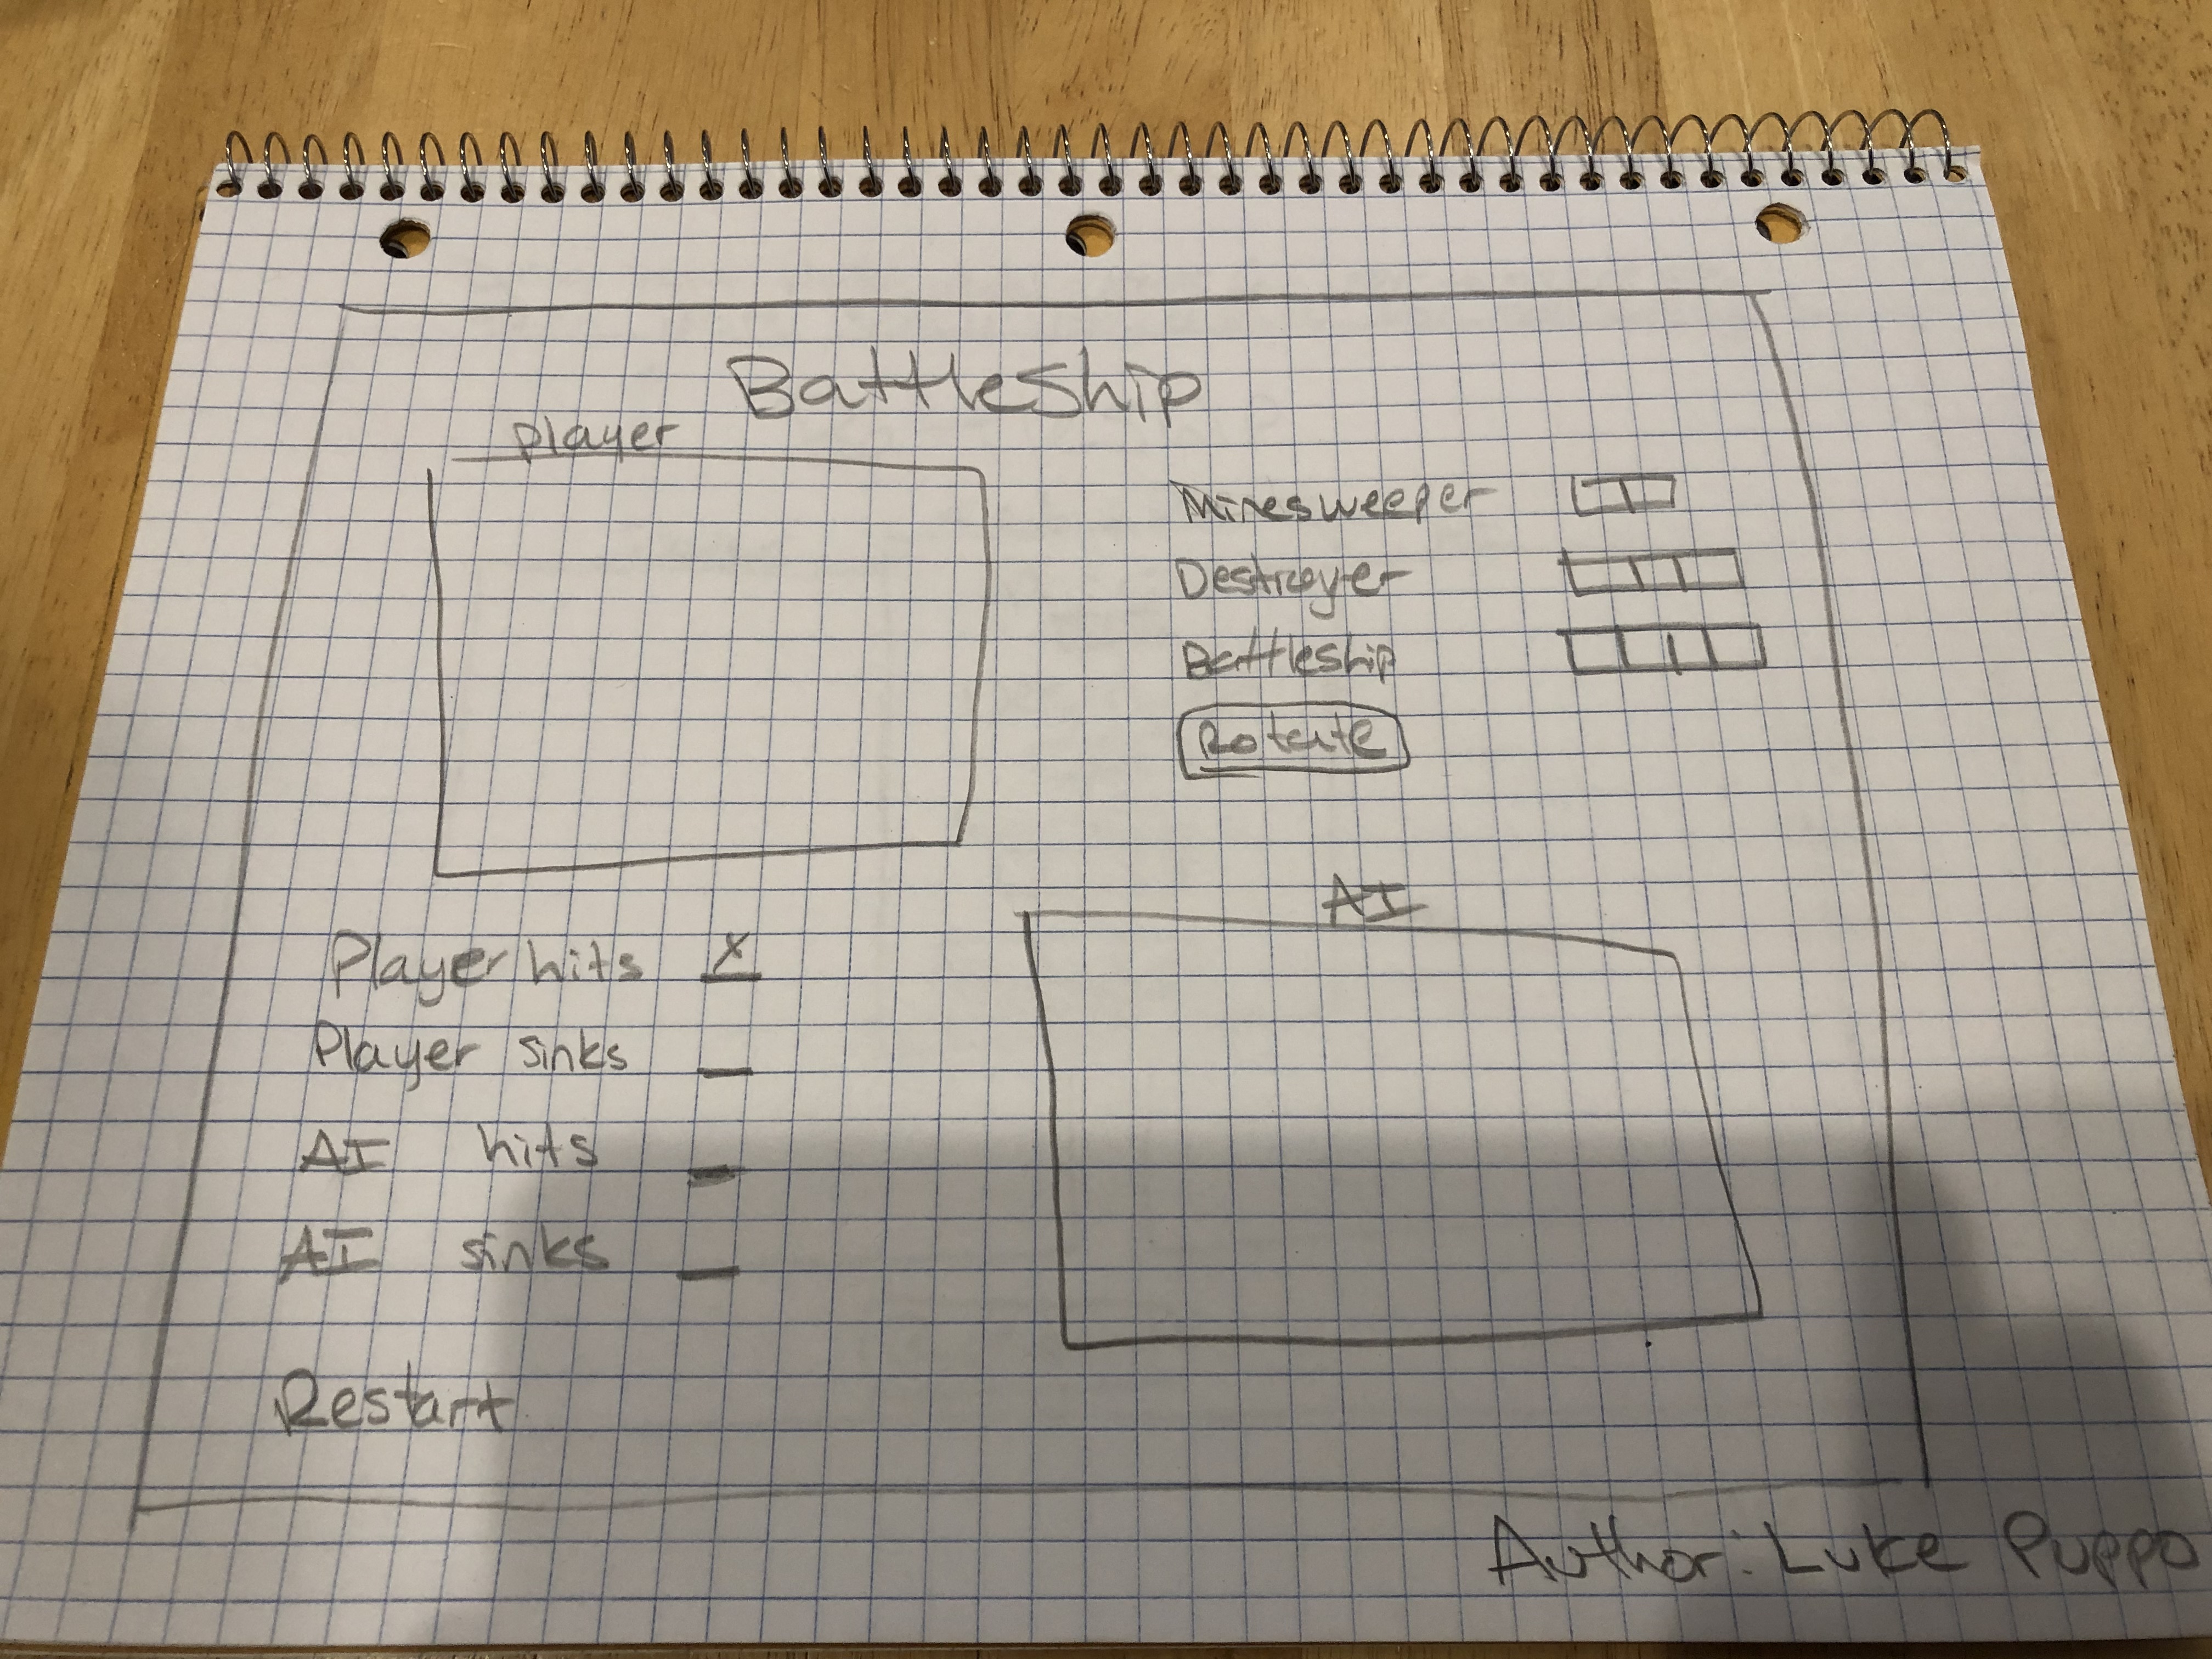 BattleShip
Player
Minesweeper
Destroyer
Battleship
Rotate
AI
Player hits X
Player sinks
AI hits
AI sinks
Restart
Author: Luke Puppo